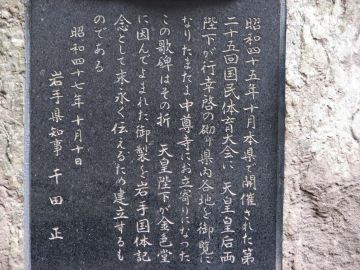 昭和四十五年十月本県で開催された第
二十五回国民体育大会に 天皇皇后両
陛下が行幸啓の砌り県内各地を御覧に
なりたまたま中尊寺にお立寄りになった
この歌碑はその折 天皇陛下が金色堂
に因んでよまれた御製を岩手国体記
念として末永く伝えるため建立するも
のである
昭和四十七年十月十日
岩手県知事 千田 正